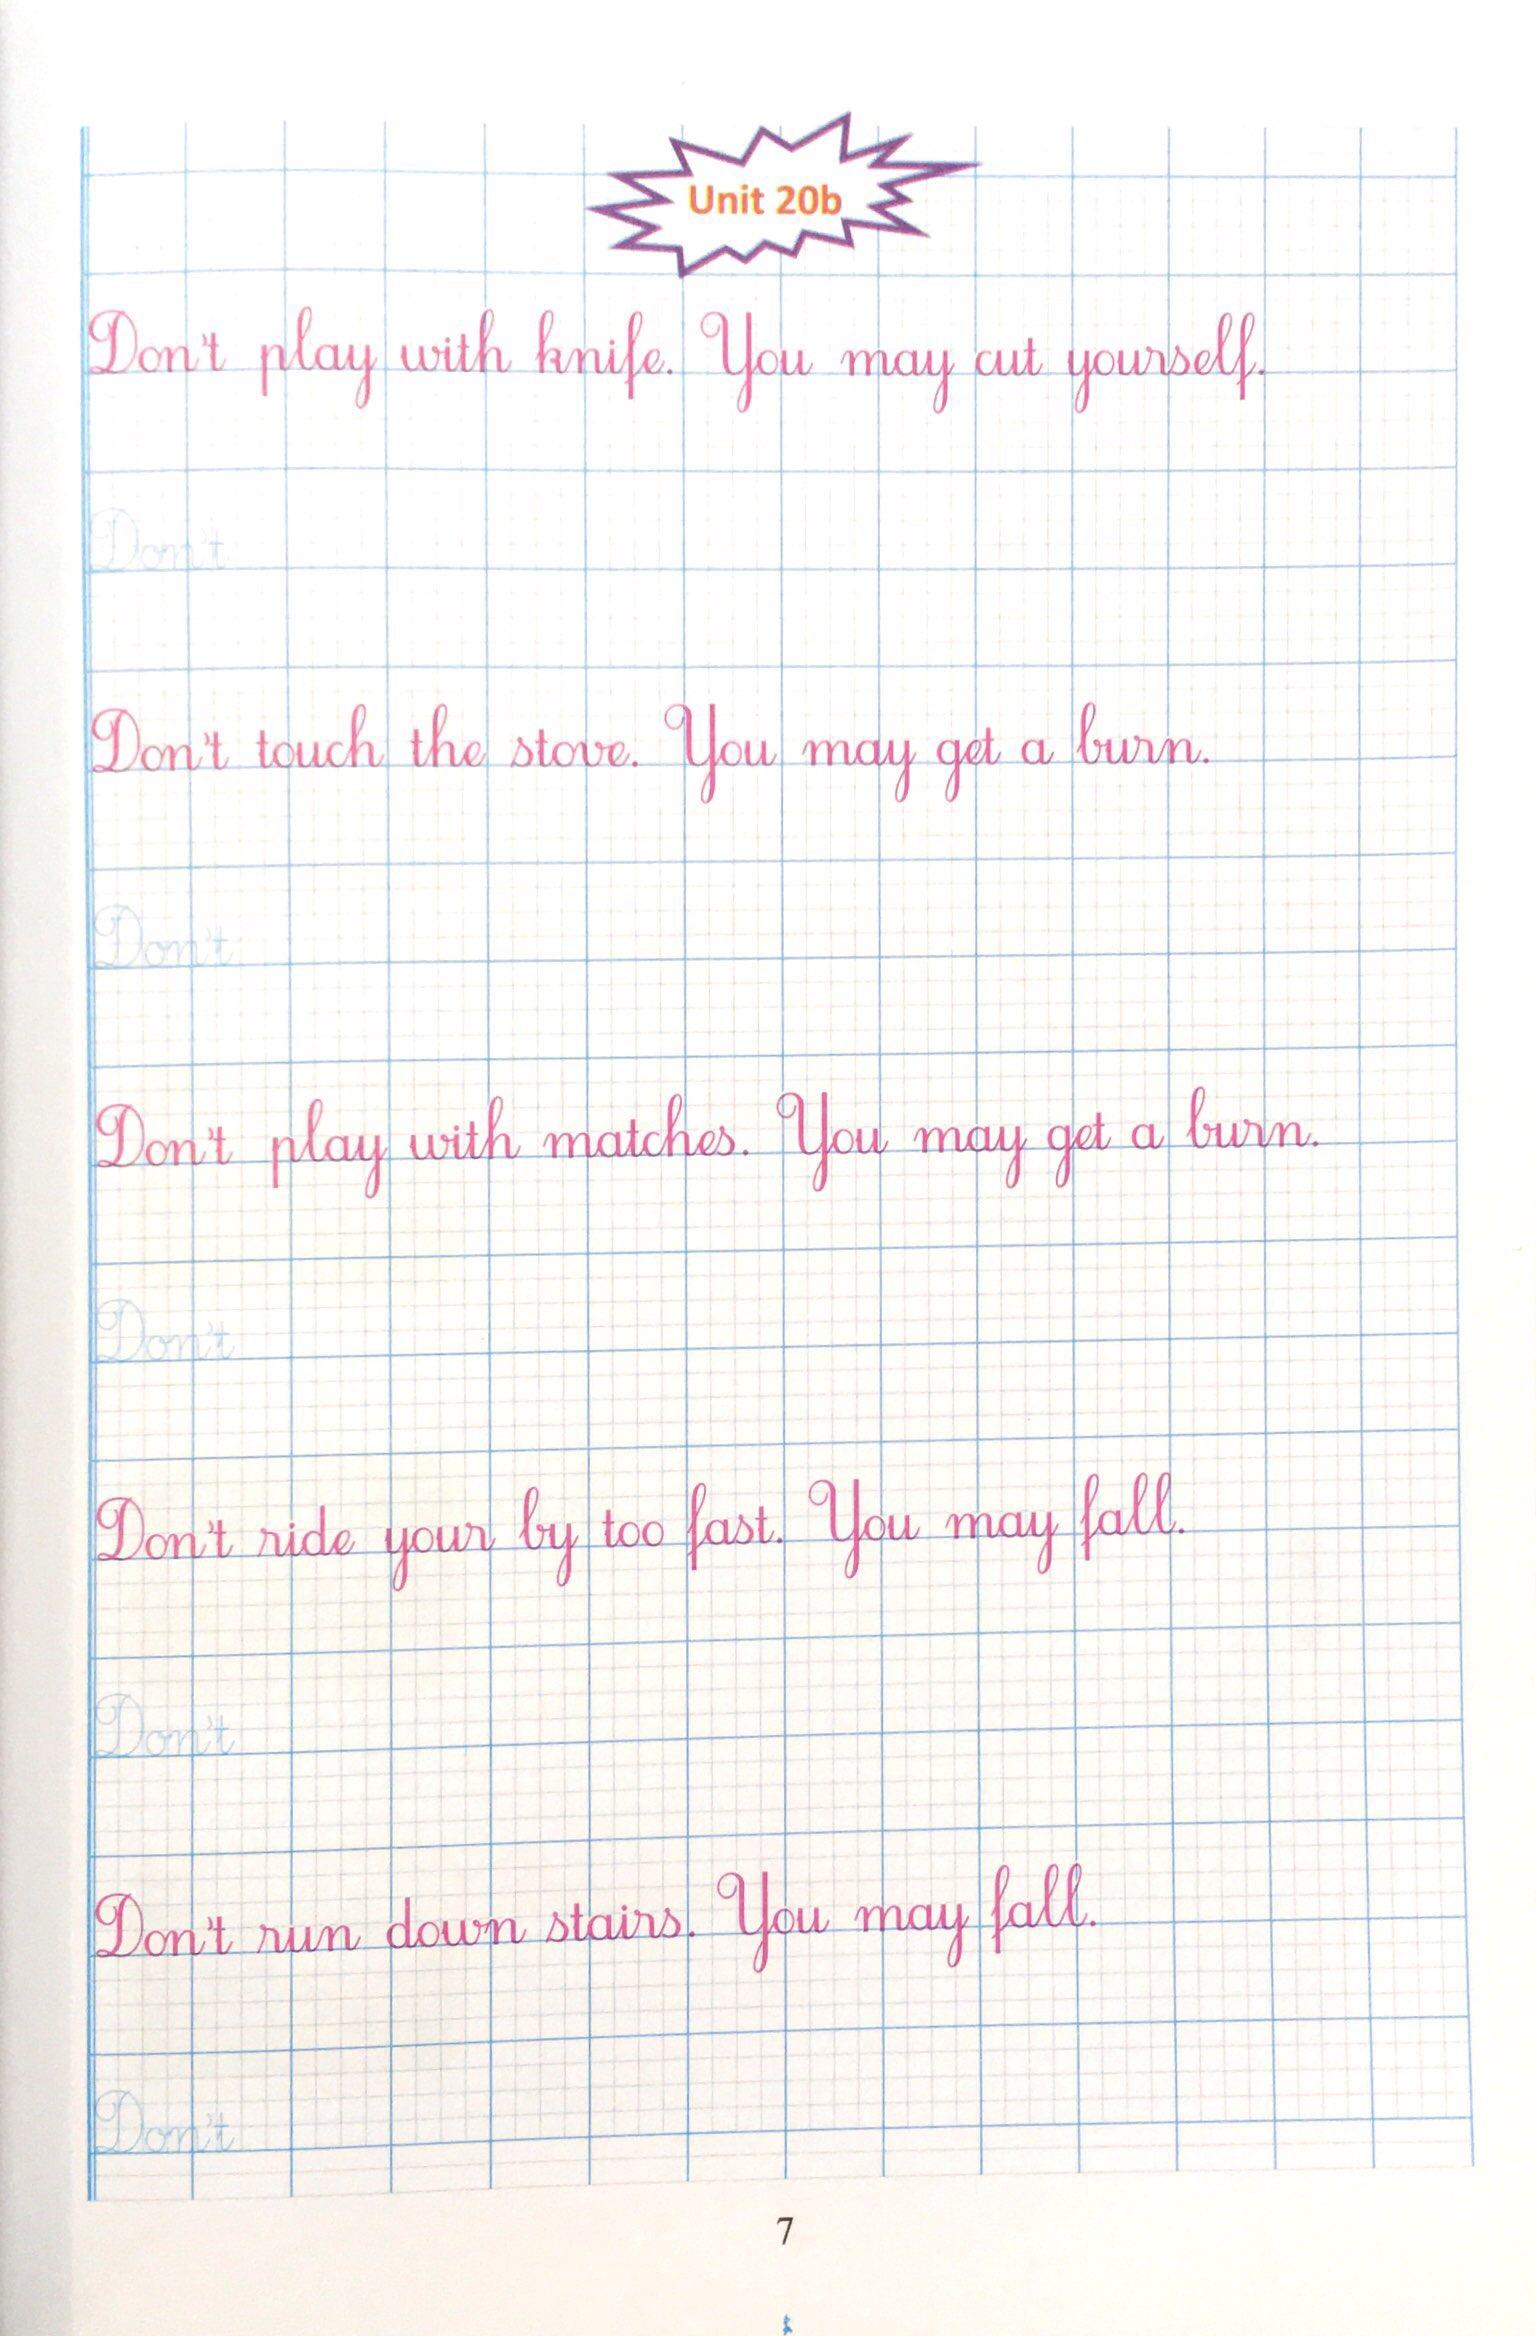 Unit 20b
Don't play with knife. You may cut yourself.
Don't
Don't touch the stove. You may get a burn.
Don't
Don't play with matches. You may get a burn.
Don't
Don't ride your by too fast. You may fall.
Don't
Don't run down stairs. You may fall.
Don't
7